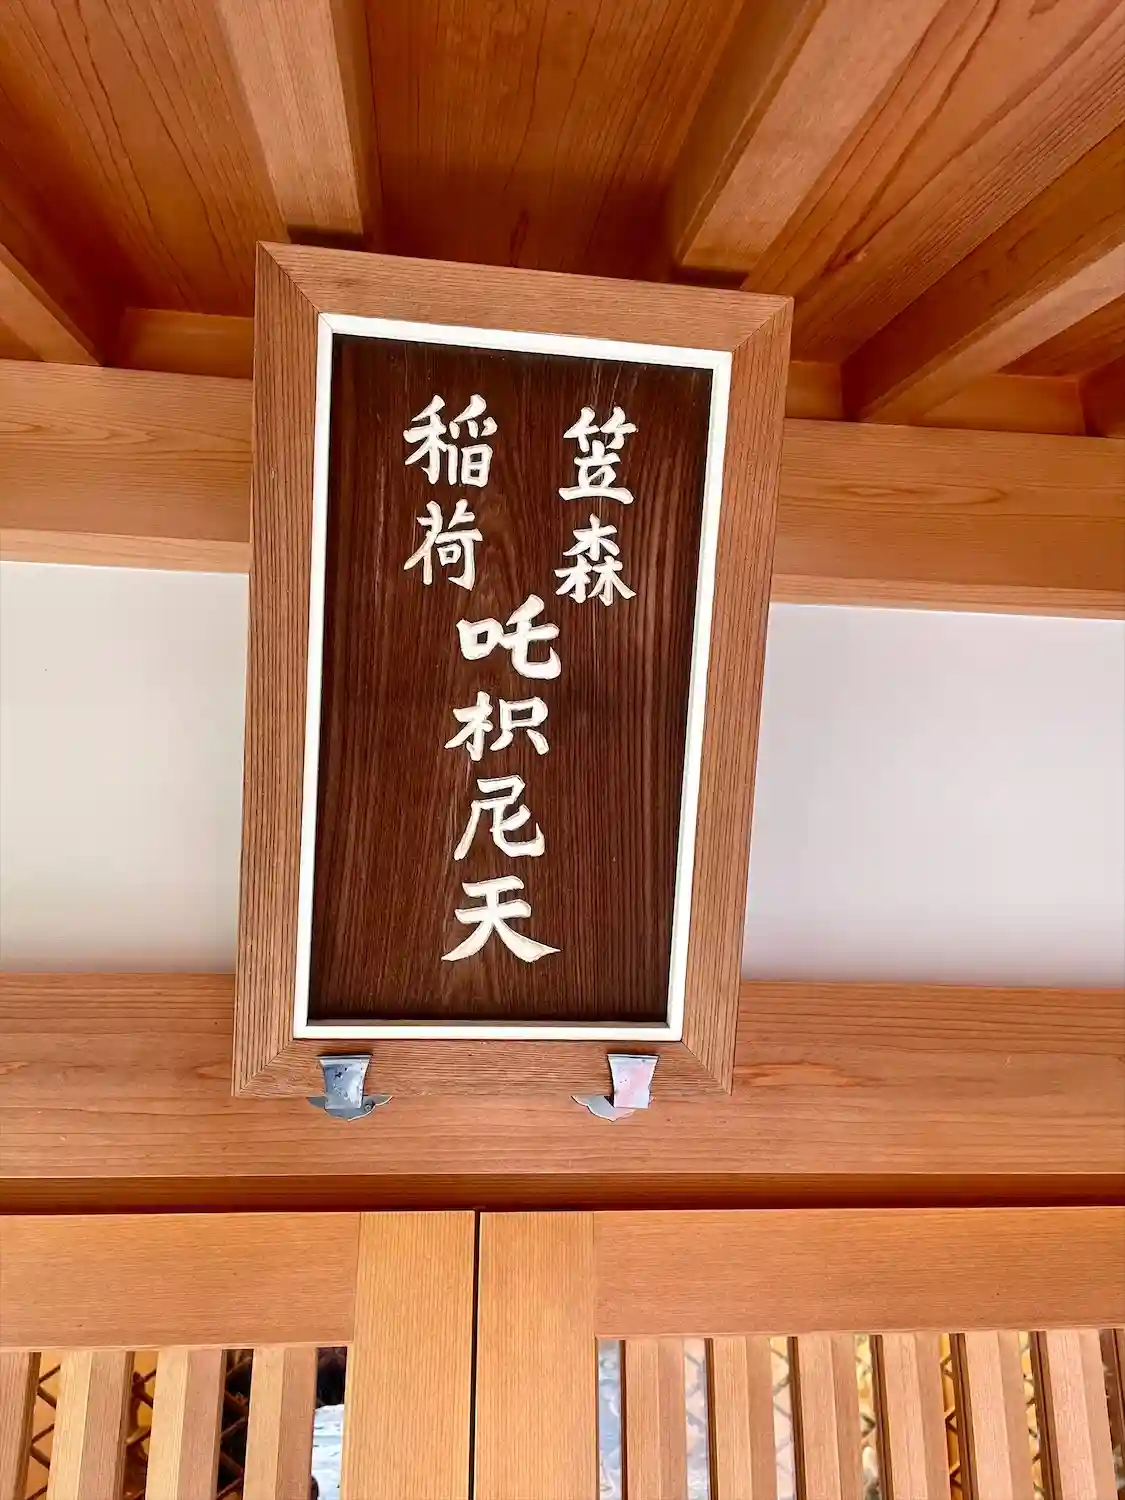 笠森
稲荷
吒枳尼天